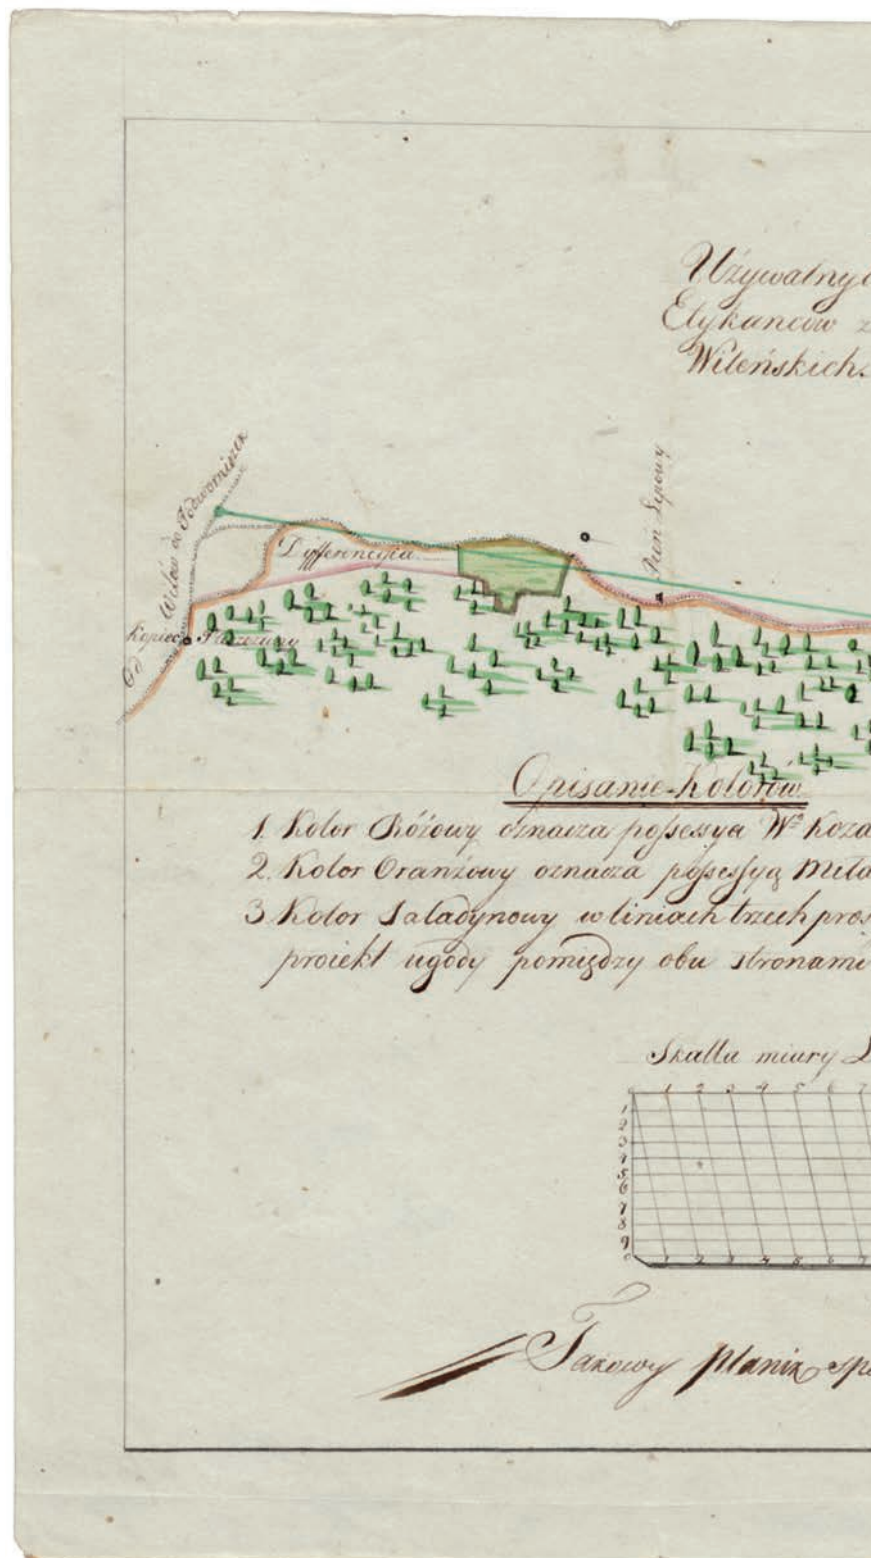 Używalnyc
Elykańców z
Wileńskich.
Od Welów do Podworniszek
Pień Lipowy
Dyfferencyia
Kopiec Narożny
Opisanie Kolorów
1. Kolor Różowy oznacza possessyą Wo Koza
2. Kolor Oranżowy oznacza possessyą Meta
3 Kolor Saladynowy w liniach trzech pros
proiekt ugody pomiędzy obu stronami
Skalla miary
1 2 3 4 5 6 7
1
2
3
4
5
6
7
8
9
0 1 2 3 4 5 6 7
Takowy planik spo